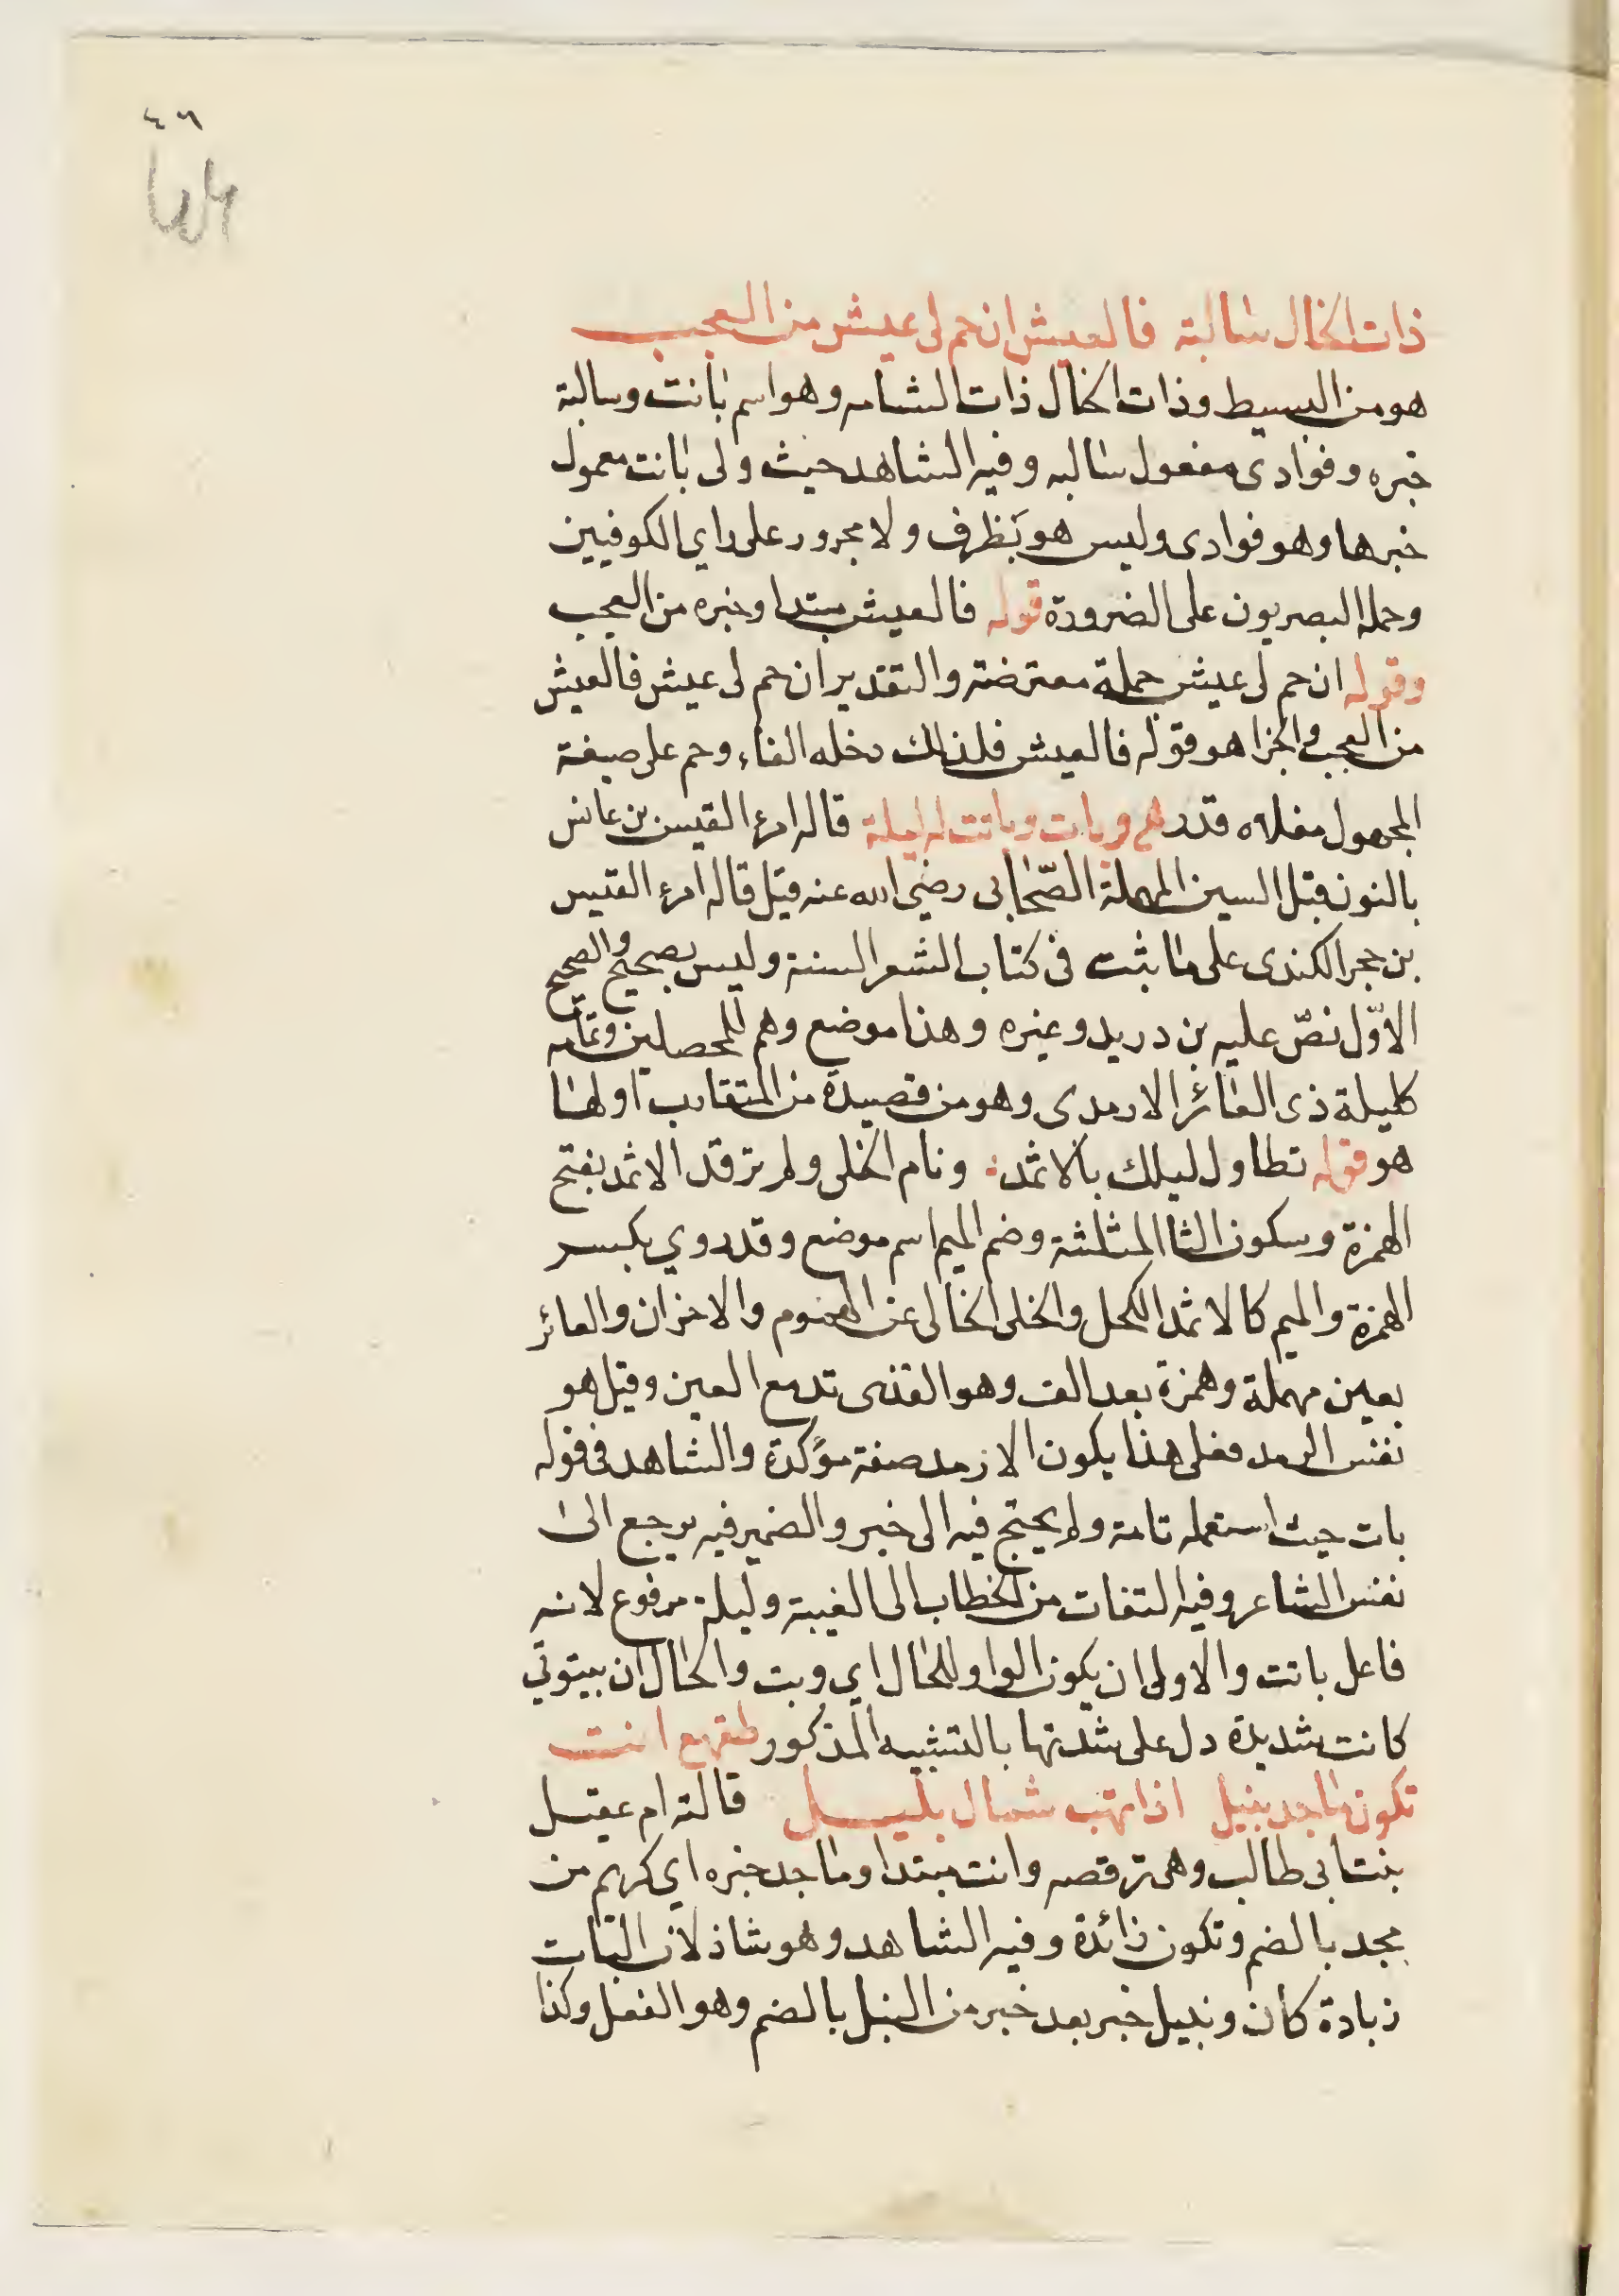 ٤٦
ذات الخال سالبة فالعيش ان حم لى عيش من العجب
هو من البسيط وذات الخال ذات الشامه وهو اسم بانت وسالبة
خبره وفوادى مفعول سالبه وفيه الشاهد حيث ولى بانت معمول
خبرها وهو فوادى وليس هو بظرف ولا مجرور على راي الكوفيين
وحمله البصريون على الضرورة قوله فالعيش مبتدا وخبره من العجب
وقوله ان حم لى عيش جملة معترضة والتقدير ان حم لى عيش فالعيش
من العجب والجزا هو قوله فالعيش فلذلك دخله الفاء وحم على صيغة
المجهول معناه قدر وبات وباتت له ليلة قاله امرء القيس بن عانس
بالنون قبل السين المهملة الصّحابى رضى الله عنه قيل قاله امرء القيس
بن حجر الكندى على ما ثبت فى كتاب الشعر الستة وليس بصحيح والصحيح
الاوّل نصّ عليه بن دريد وغيره وهذا موضع وهم للمحصلين وتمامه
كليلة ذى العائر الارمدى وهو من قصيدة من المتقارب اولها
هو قوله تطاول ليلك بالاثمد ونام الخلى ولم ترقد الاثمد بفتح
الهمزة وسكون الثا المثلثة وضم الميم اسم موضع وقد روي بكسر
الهمزة والميم كالاثمد الكحل والخلى الخالى عن الهموم والاحزان والعائر
بعين مهملة وهمزة بعد الف وهو القذى تدمع العين وقيل هو
نفس الرمد فعلى هذا يكون الارمد صفة مؤكدة والشاهد فى قوله
بات حيث استعمله تامة ولم يحتج فيه الى خبر والضمير فيه يرجع الى
نفس الشاعر وفيه التفات من الخطاب الى الغيبة وليلة مرفوع لانه
فاعل باتت والاولى ان يكون الواو للحال اي وبت والحال ان بيتوتي
كانت شديدة دل على شدتها بالتشبيه المذكور طقهع انت
تكون ماجد نبيل اذا تهب شمال بليل قالته ام عقيل
بنت ابى طالب وهى ترقصه وانت مبتدا وماجد خبره اي كريم من
مجد بالضم وتكون زائدة وفيه الشاهد وهو شاذ لان الثابت
زيادة كان ونبيل خبر بعد خبر من النبل بالضم وهو الفضل وكذا